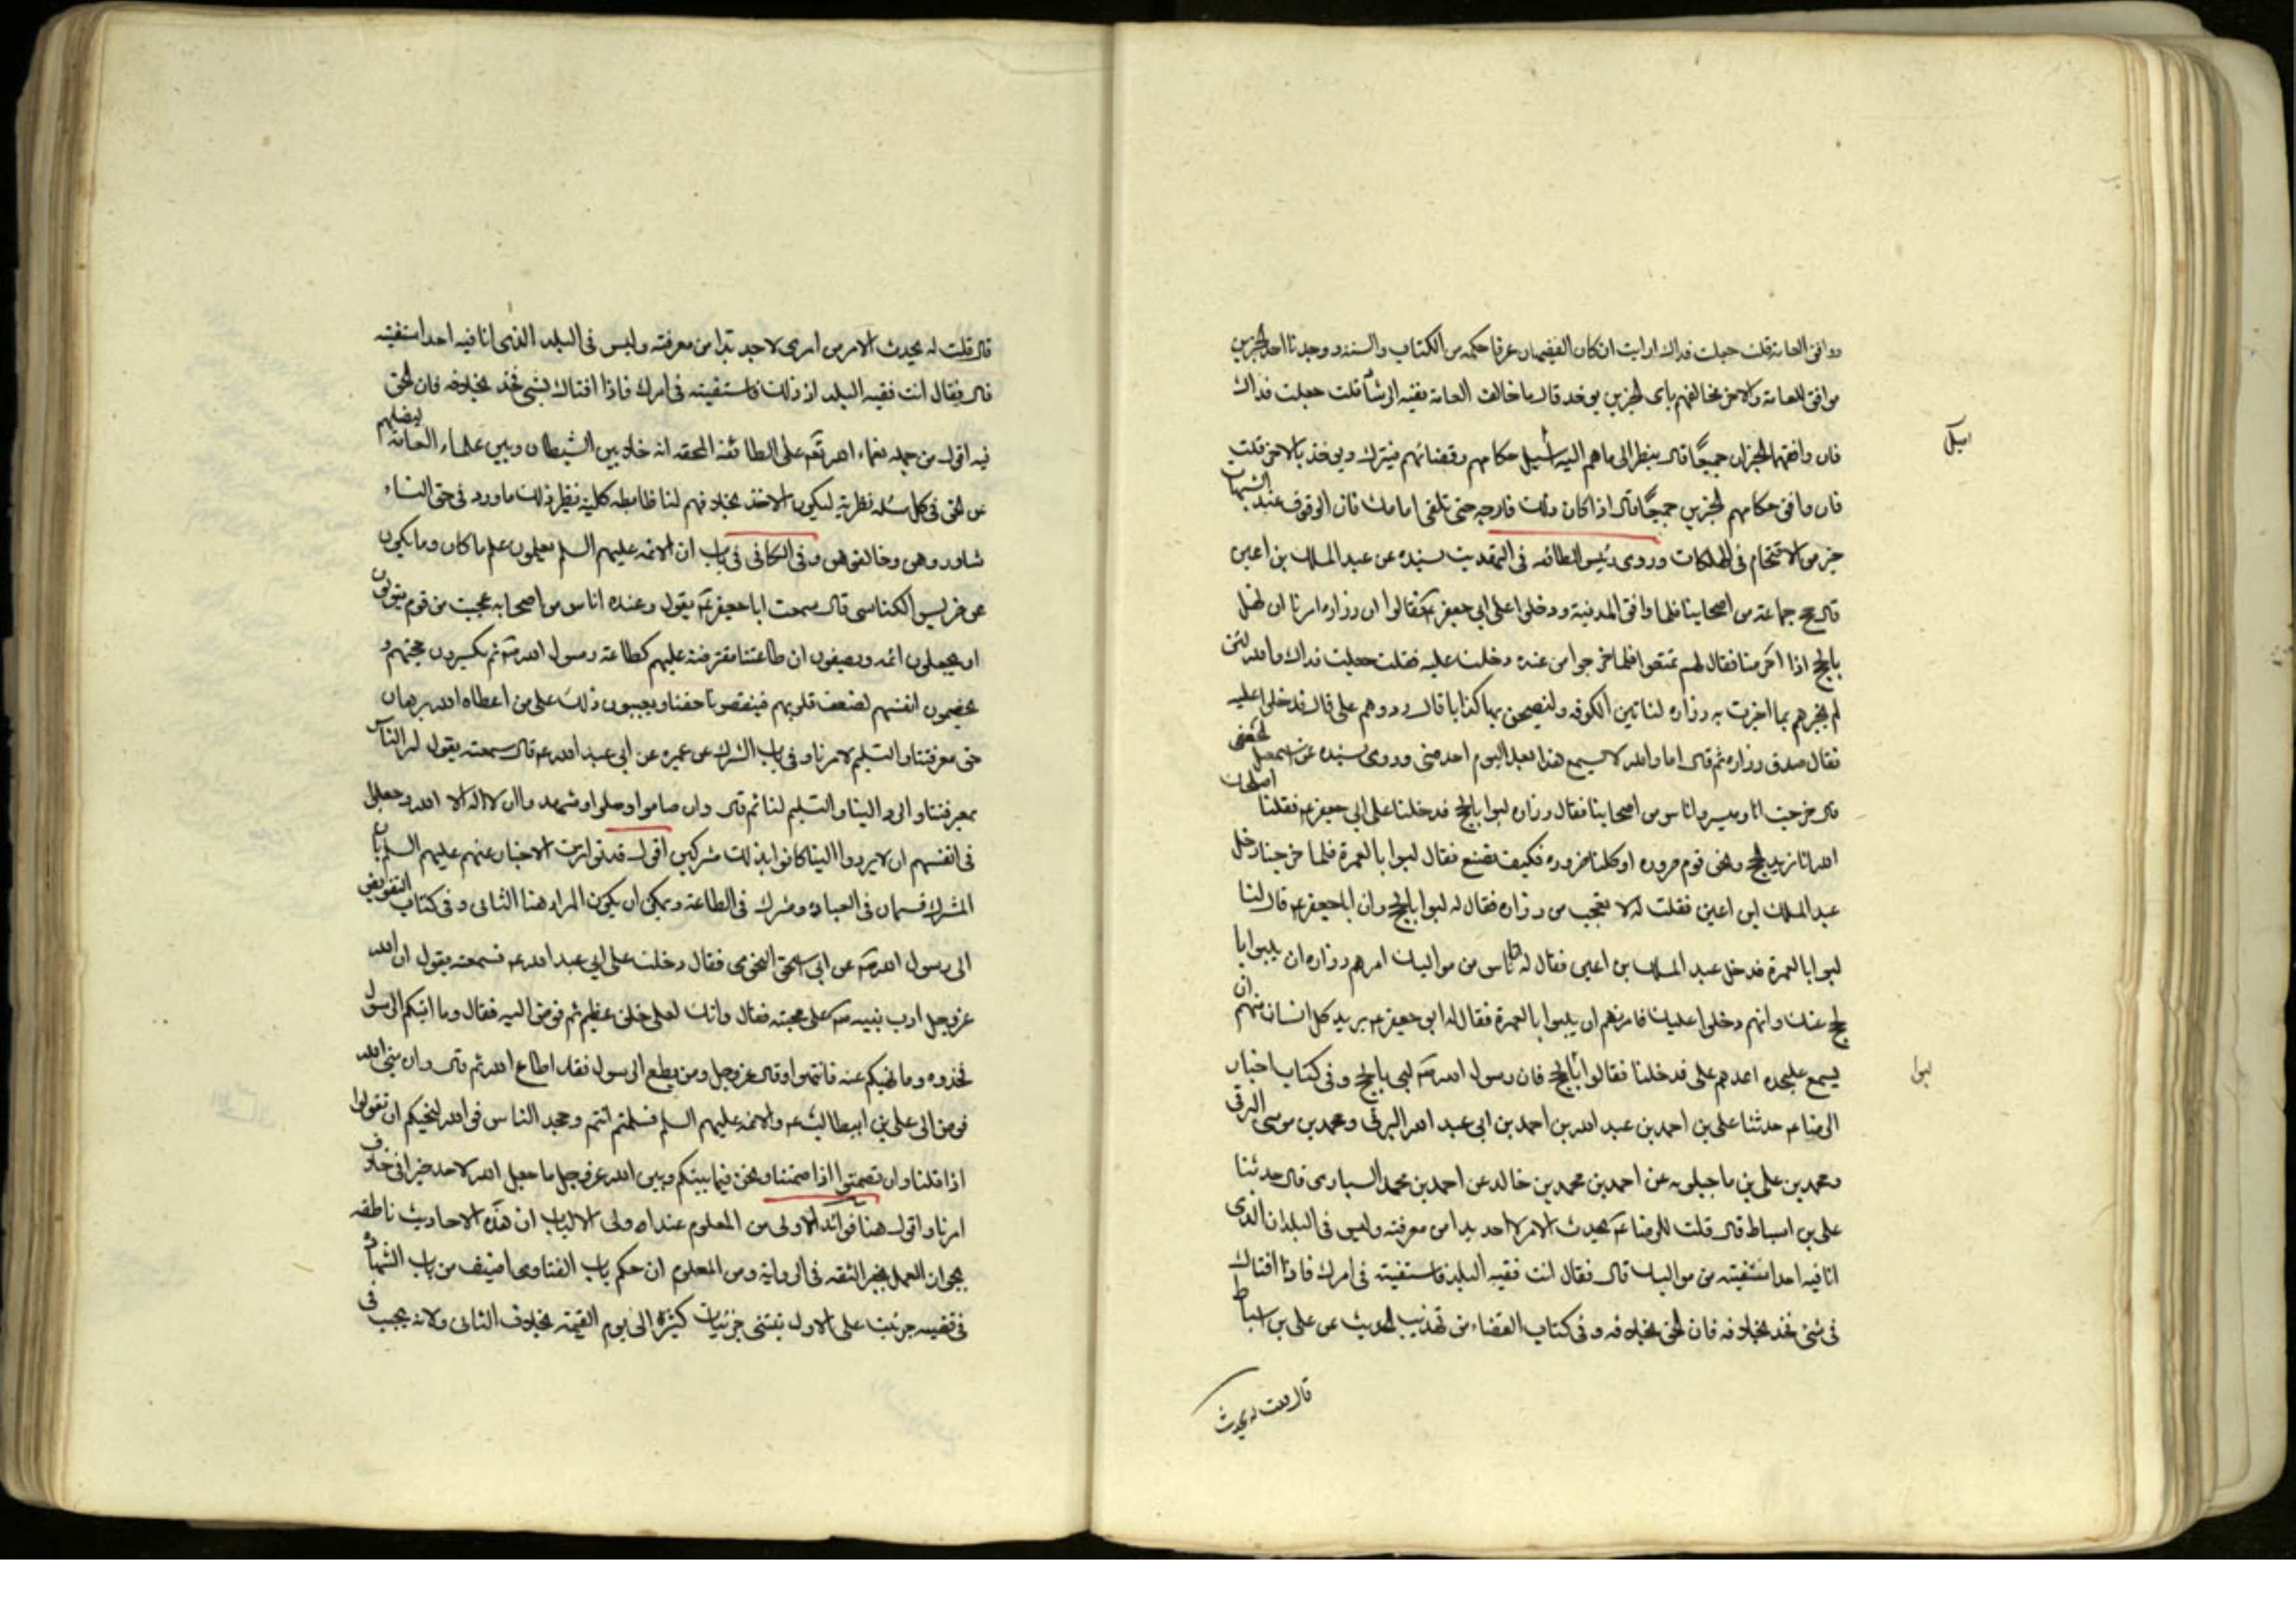 ووافق العامة قلت جعلت فداك ارايت ان كان الفقيهان عرفا حكمه من الكتاب والسنة ووجدنا احد الخبرين
موافق للعامة والاخر مخالفهم باى الخبرين يوخذ قال ما خالف العامة ففيه الرشاد قلت جعلت فداك
فان وافقهما الخبران جميعًا قال ينظر الى ما هم اليه اميل حكامهم وقضاتهم فيترك ويوخذ بالاخر قلت
اميل
فان وافق حكامهم الخبرين جميعًا قال اذا كان ذلك فارجه حتى تلقى امامك فان الوقوف عند الشبهات
خير من الاقتحام فى الهلكات وروى رئيس الطائفه فى التهذيب بسنده عن عبد الملك بن اعين
قال حج جماعة من اصحابنا فلما وافوا المدينة ودخلوا على ابى جعفر ع فقالوا ان زراره امرنا ان نهل
بالحج اذا احرمنا فقال لهم تمتعوا فلما خرجوا من عنده دخلت عليه فقلت جعلت فداك والله لئن
لم تخبرهم بما اخبرت به زراره لناتين الكوفه ولنصبحن بها كذابا قال ردوهم على قال فدخلوا عليه
فقال صدق زراره ثم قال اما والله لا يسمع هذا بعد اليوم احد منى وروى بسنده عن اسمعيل الجعفى
قال خرجت انا وميسر واناس من اصحابنا فقال زراره لبوا بالحج فدخلنا على ابى جعفر ع فقلنا اصلحك
الله انا نريد الحج ونحن قوم صروره او كلنا صروره فكيف نصنع فقال لبوا بالعمرة فلما خرجنا دخل
عبد الملك ابن اعين فقلت له الا تعجب من زراره فقال له لبوا بالحج وان ابا جعفر ع قال لنا
لبوا بالعمرة فدخل عبد الملك بن اعين فقال له ان اناس من مواليك امرهم زراره ان يلبوا با
لحج عنك وانهم دخلوا عليك فامرتهم ان يلبوا بالعمرة فقال له ابو جعفر ع يريد كل انسان منهم ان
يسمع على حده اعدهم على فدخلنا فقال لبوا بالحج فان رسول الله ص لبى بالحج وفى كتاب اخبار
لبوا
الرضا ع حدثنا على بن احمد بن عبد الله بن احمد بن ابى عبد الله البرقى ومحمد بن موسى البرقى
ومحمد بن على بن ماجيلويه عن احمد بن محمد بن خالد عن احمد بن محمد السيارى قال حدثنا
على بن اسباط قال قلت للرضا ع يحدث الامر لا اجد بدا من معرفته وليس فى البلد الذى
انا فيه احد استفتيه من مواليك قال فقال ائت فقيه البلد فاستفتيه فى امرك فاذا افتاك
فى شئ فخذ بخلافه فان الحق بخلافه وفى كتاب القضاء من تهذيب الحديث عن على بن اسباط
قال قلت له يحدث
قال قلت له يحدث الامر من امرى لا اجد بدا من معرفته وليس فى البلد الذى انا فيه احد استفتيه
قال فقال ائت فقيه البلد اذ ذلك فاستفتيه فى امرك فاذا افتاك بشئ فخذ بخلافه فان الحق
فيه اقول من جمله نعماء الله تعه على الطائفه المحقه انه خلا بين الشيطان وبين علماء العامة ليضلهم
عن الحق فى كل مسئله نظرية ليكون الاخذ بخلافهم لنا ضابطه كلية نظير ذلك ما ورد فى حق النساء
شاوروهن وخالفوهن وفى الكافى فى باب ان الائمه عليهم السلم يعلمون علم ما كان وما يكون
عن ضريس الكناسى قال سمعت ابا جعفر ع يقول وعنده اناس من اصحابه عجبت من قوم يتولونا
ان يجعلون ائمه ويصفون ان طاعتنا مفترضة عليهم كطاعة رسول الله ص ثم يكسرون حجتهم و
يخصمون انفسهم لضعف قلوبهم فينقصونا حقنا ويعيبون ذلك على من اعطاه الله برهان
حق معرفتنا والتسليم لامرنا وفى باب الشرك عن عميره عن ابى عبد الله ع قال سمعته يقول امر الناس
بمعرفتنا والرد الينا والتسليم لنا ثم قال وان صاموا وصلوا وشهدوا ان لا اله الا الله وجعلوا
فى انفسهم ان لا يردوا الينا كانوا بذلك مشركين اقول قد تواترت الاخبار عنهم عليهم السلم بان
الشرك قسمان فى العباده وشرك فى الطاعة ويمكن ان يكون المراد هنا الثانى وفى كتاب التفويض
الى رسول الله ص عن ابى اسحق النحوى فقال دخلت على ابى عبد الله ع فسمعته يقول ان الله
عز وجل ادب نبيه ص على محبته فقال وانك لعلى خلق عظيم ثم فوض اليه فقال وما اتيكم الرسول
فخذوه وما نهيكم عنه فانتهوا وقال عز وجل ومن يطع الرسول فقد اطاع الله ثم قال وان نبى الله
فوض الى على بن ابيطالب ع والائمه عليهم السلم فسلمتم انتم وجحد الناس فوالله لنحبكم ان تقولوا
اذا قلنا وان تصمتوا اذا صمتنا ونحن فيما بينكم وبين الله عز وجل ما جعل الله لاحد خيرا فى خلاف
امرنا واقول هنا فوائد الاولى من المعلوم عند اولى الالباب ان هذه الاحاديث ناطقه
بجواز العمل بخبر الثقه فى الرواية ومن المعلوم ان حكم باب الفتاوى اضيف من باب الشهادة
فى قضيه جزئية على الاول يبتنى جزئيات كثيرة الى يوم القيمة بخلاف الثانى ولانه يجب فى